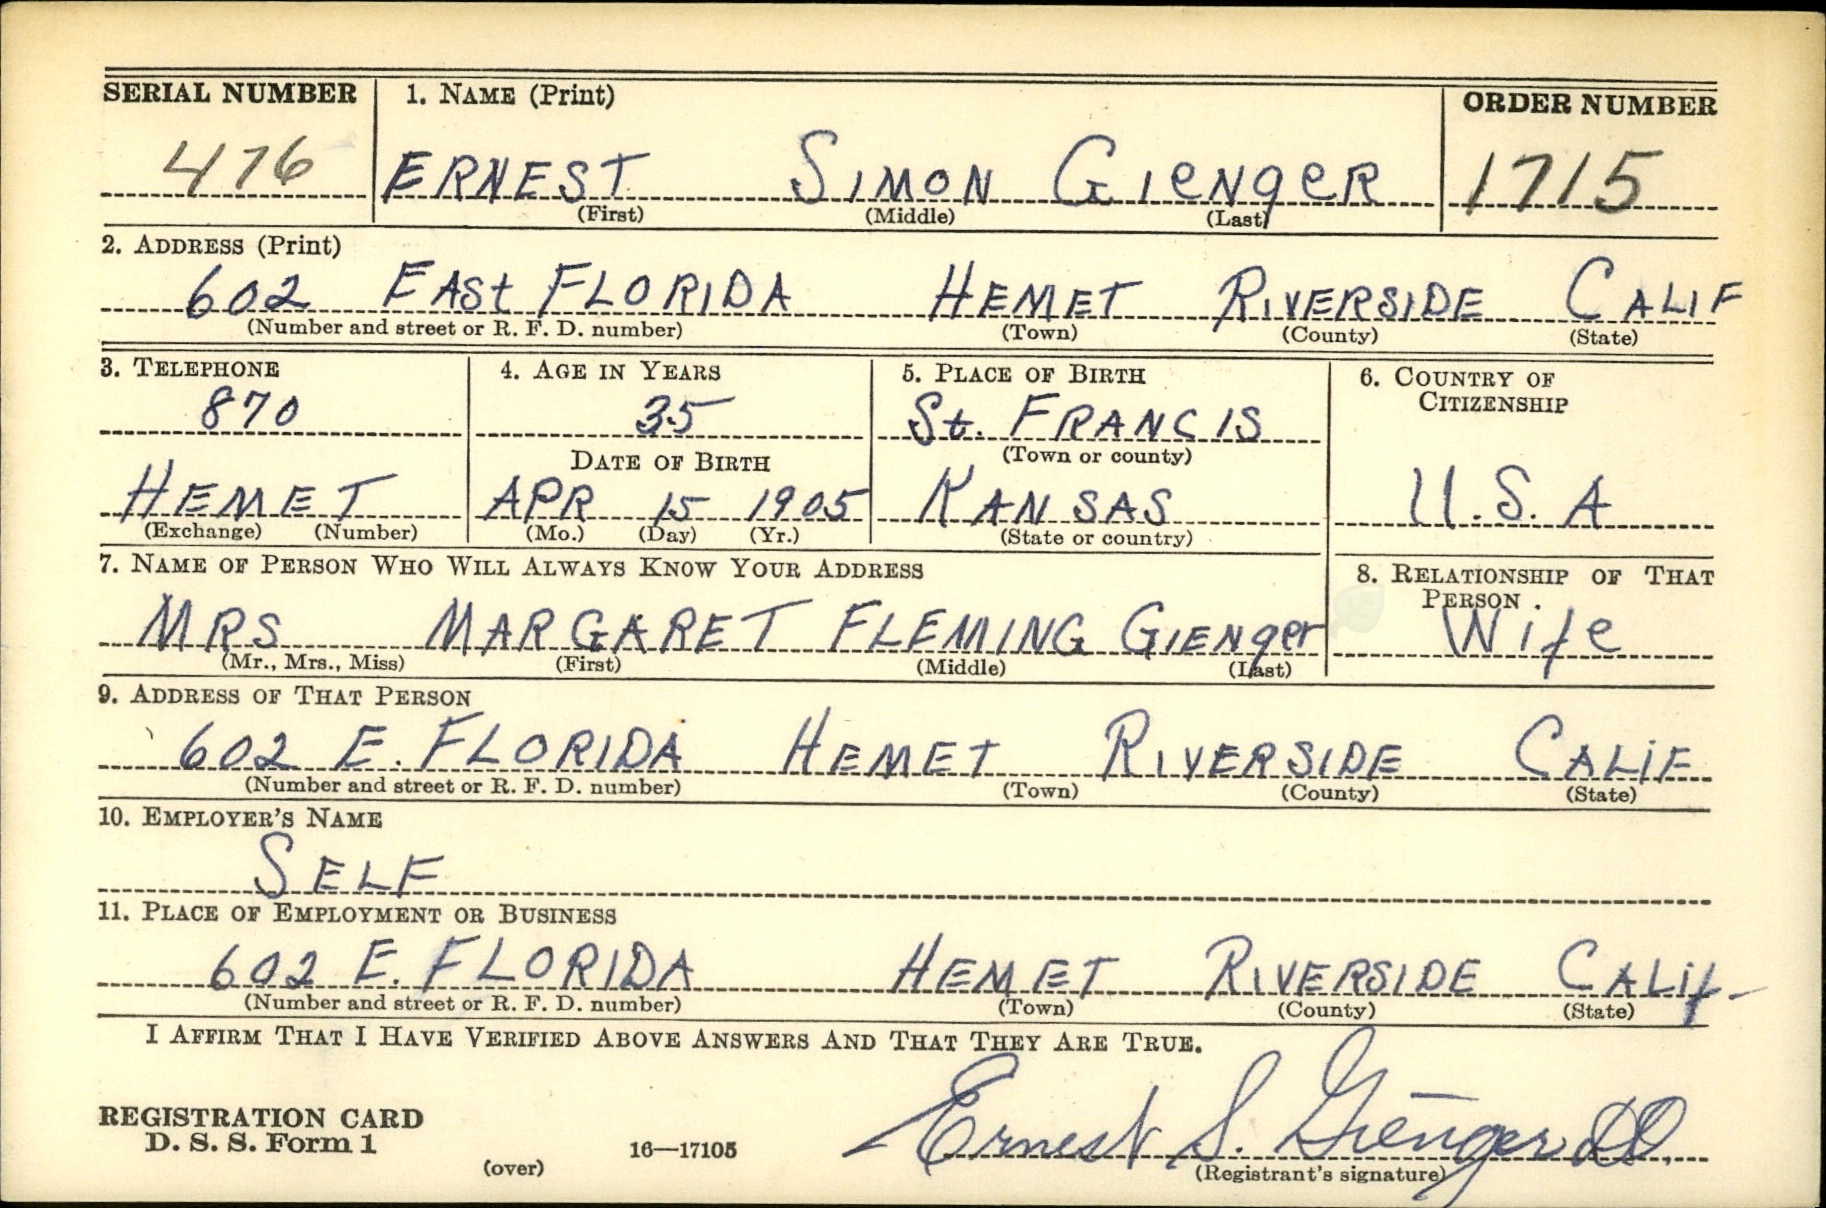 SERIAL NUMBER 1. NAME (Print) ORDER NUMBER
476 ERNEST SIMON GIENGER 1715
(First) (Middle) (Last)
2. ADDRESS (Print)
602 EAST FLORIDA HEMET RIVERSIDE CALIF
(Number and street or R. F. D. number) (Town) (County) (State)
3. TELEPHONE 4. AGE IN YEARS 5. PLACE OF BIRTH 6. COUNTRY OF CITIZENSHIP
870 35 St. FRANCIS
(Town or county)
DATE OF BIRTH
HEMET APR 15 1905 KANSAS U.S.A
(Exchange) (Number) (Mo.) (Day) (Yr.) (State or country)
7. NAME OF PERSON WHO WILL ALWAYS KNOW YOUR ADDRESS 8. RELATIONSHIP OF THAT PERSON.
MRS MARGARET FLEMING GIENger Wife
(Mr., Mrs., Miss) (First) (Middle) (Last)
9. ADDRESS OF THAT PERSON
602 E. FLORIDA HEMET RIVERSIDE CALIF
(Number and street or R. F. D. number) (Town) (County) (State)
10. EMPLOYER'S NAME
SELF
11. PLACE OF EMPLOYMENT OR BUSINESS
602 E. FLORIDA HEMET RIVERSIDE CALif
(Number and street or R. F. D. number) (Town) (County) (State)
I AFFIRM THAT I HAVE VERIFIED ABOVE ANSWERS AND THAT THEY ARE TRUE.
REGISTRATION CARD
D. S. S. Form 1 16—17105 Ernest S. Gienger
(over) (Registrant's signature)